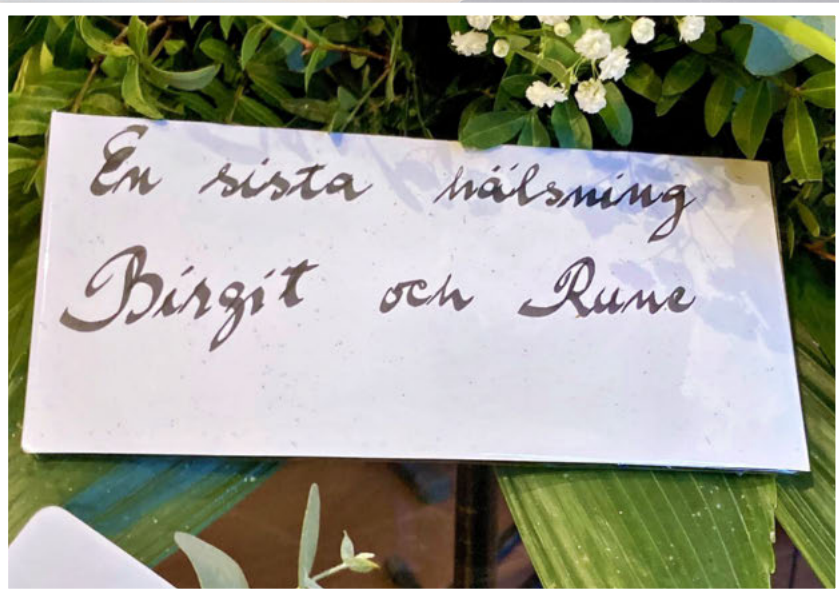 En sista hälsning
Birgit och Rune